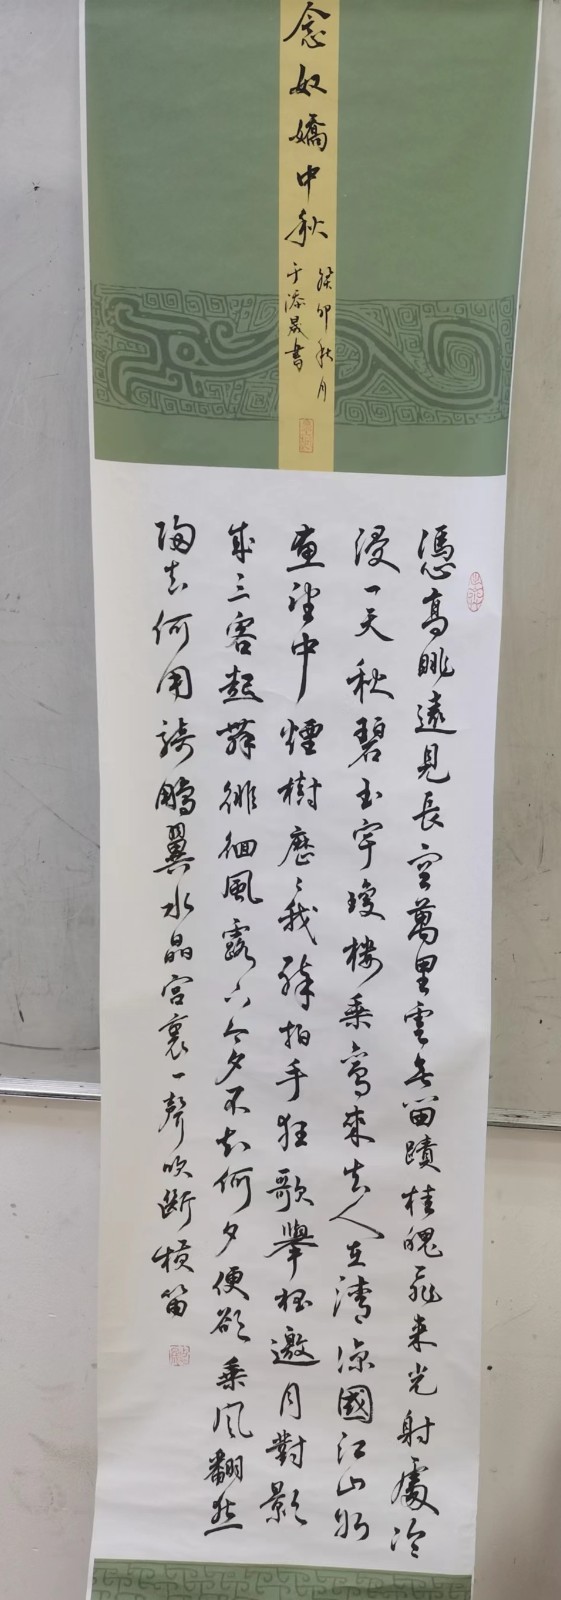 念奴嬌中秋
癸卯秋月
于添晟書
憑高眺遠見長空萬里雲無留蹟桂魄飛來光射處冷
浸一天秋碧玉宇瓊樓乘鸞來去人在清涼國江山如
畫望中煙樹歷々我醉拍手狂歌舉杯邀月對影
成三客起舞徘徊風露下今夕不知何夕便欲乘風翻然
歸去何用騎鵬翼水晶宮裏一聲吹斷橫笛